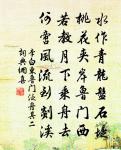 水作青龍盤石堤
桃花夾岸魯門西
若教月下乘舟去
何啻風流到剡溪
李白東魯門泛舟其二